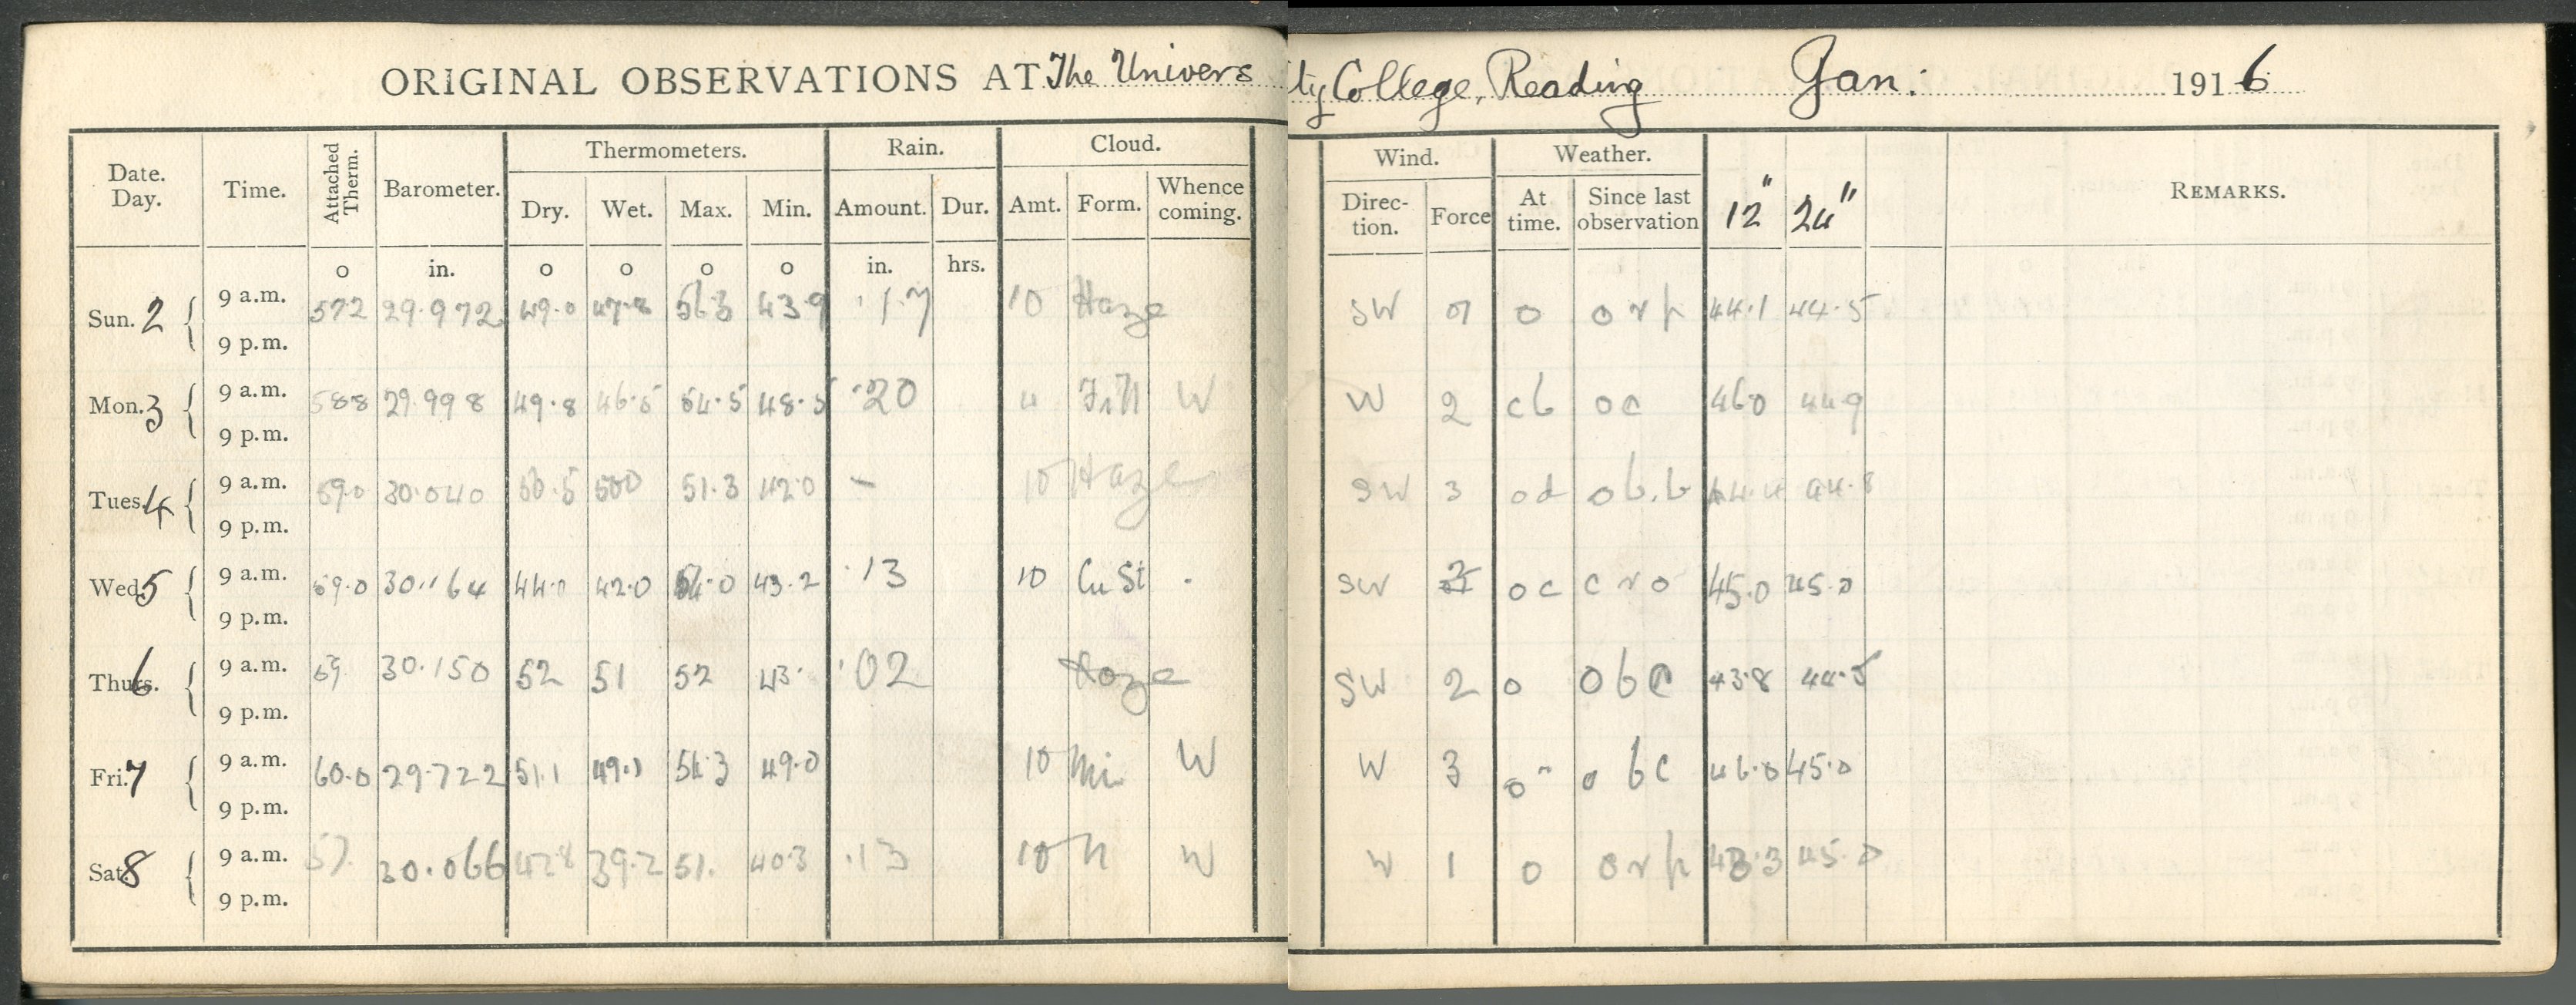 ORIGINAL OBSERVATIONS AT The University College, Reading Jan: 1916
Date. Day. Time. Attached Therm. Barometer. Thermometers. Rain. Cloud. Wind. Weather. 12" 24" REMARKS.
Dry. Wet. Max. Min. Amount. Dur. Amt. Form. Whence coming. Direc- tion. Force At time. Since last observation
o in. o o o o in. hrs.
Sun. 2 9 a.m. 57.2 29.972 49.0 47.8 56.3 43.9 .17 10 Haze SW o o r p 44.1 44.5
9 p.m.
Mon. 3 9 a.m. 58.8 29.998 49.8 46.5 54.5 48.5 .20 4 W W 2 c b o c 46.0 44.9
9 p.m.
Tues. 4 9 a.m. 59.0 30.040 50.5 50.0 51.3 42.0 – 10 Haze SW 3 o d o b.b 44.4 44.8
9 p.m.
Wed. 5 9 a.m. 59.0 30.164 44.0 42.0 54.0 43.2 .13 10 Cu St . SW o c c r o 45.0 45.0
9 p.m.
Thurs. 6 9 a.m. 59. 30.150 52 51 52 43. .02 Haze SW 2 o o b c 43.8 44.5
9 p.m.
Fri. 7 9 a.m. 60.0 29.722 51.1 49.1 54.3 49.0 10 W W 3 o o b c 46.0 45.0
9 p.m.
Sat. 8 9 a.m. 57. 30.066 42.8 39.2 51. 40.3 .13 10 N W W 1 o o r p 43.3 45.0
9 p.m.